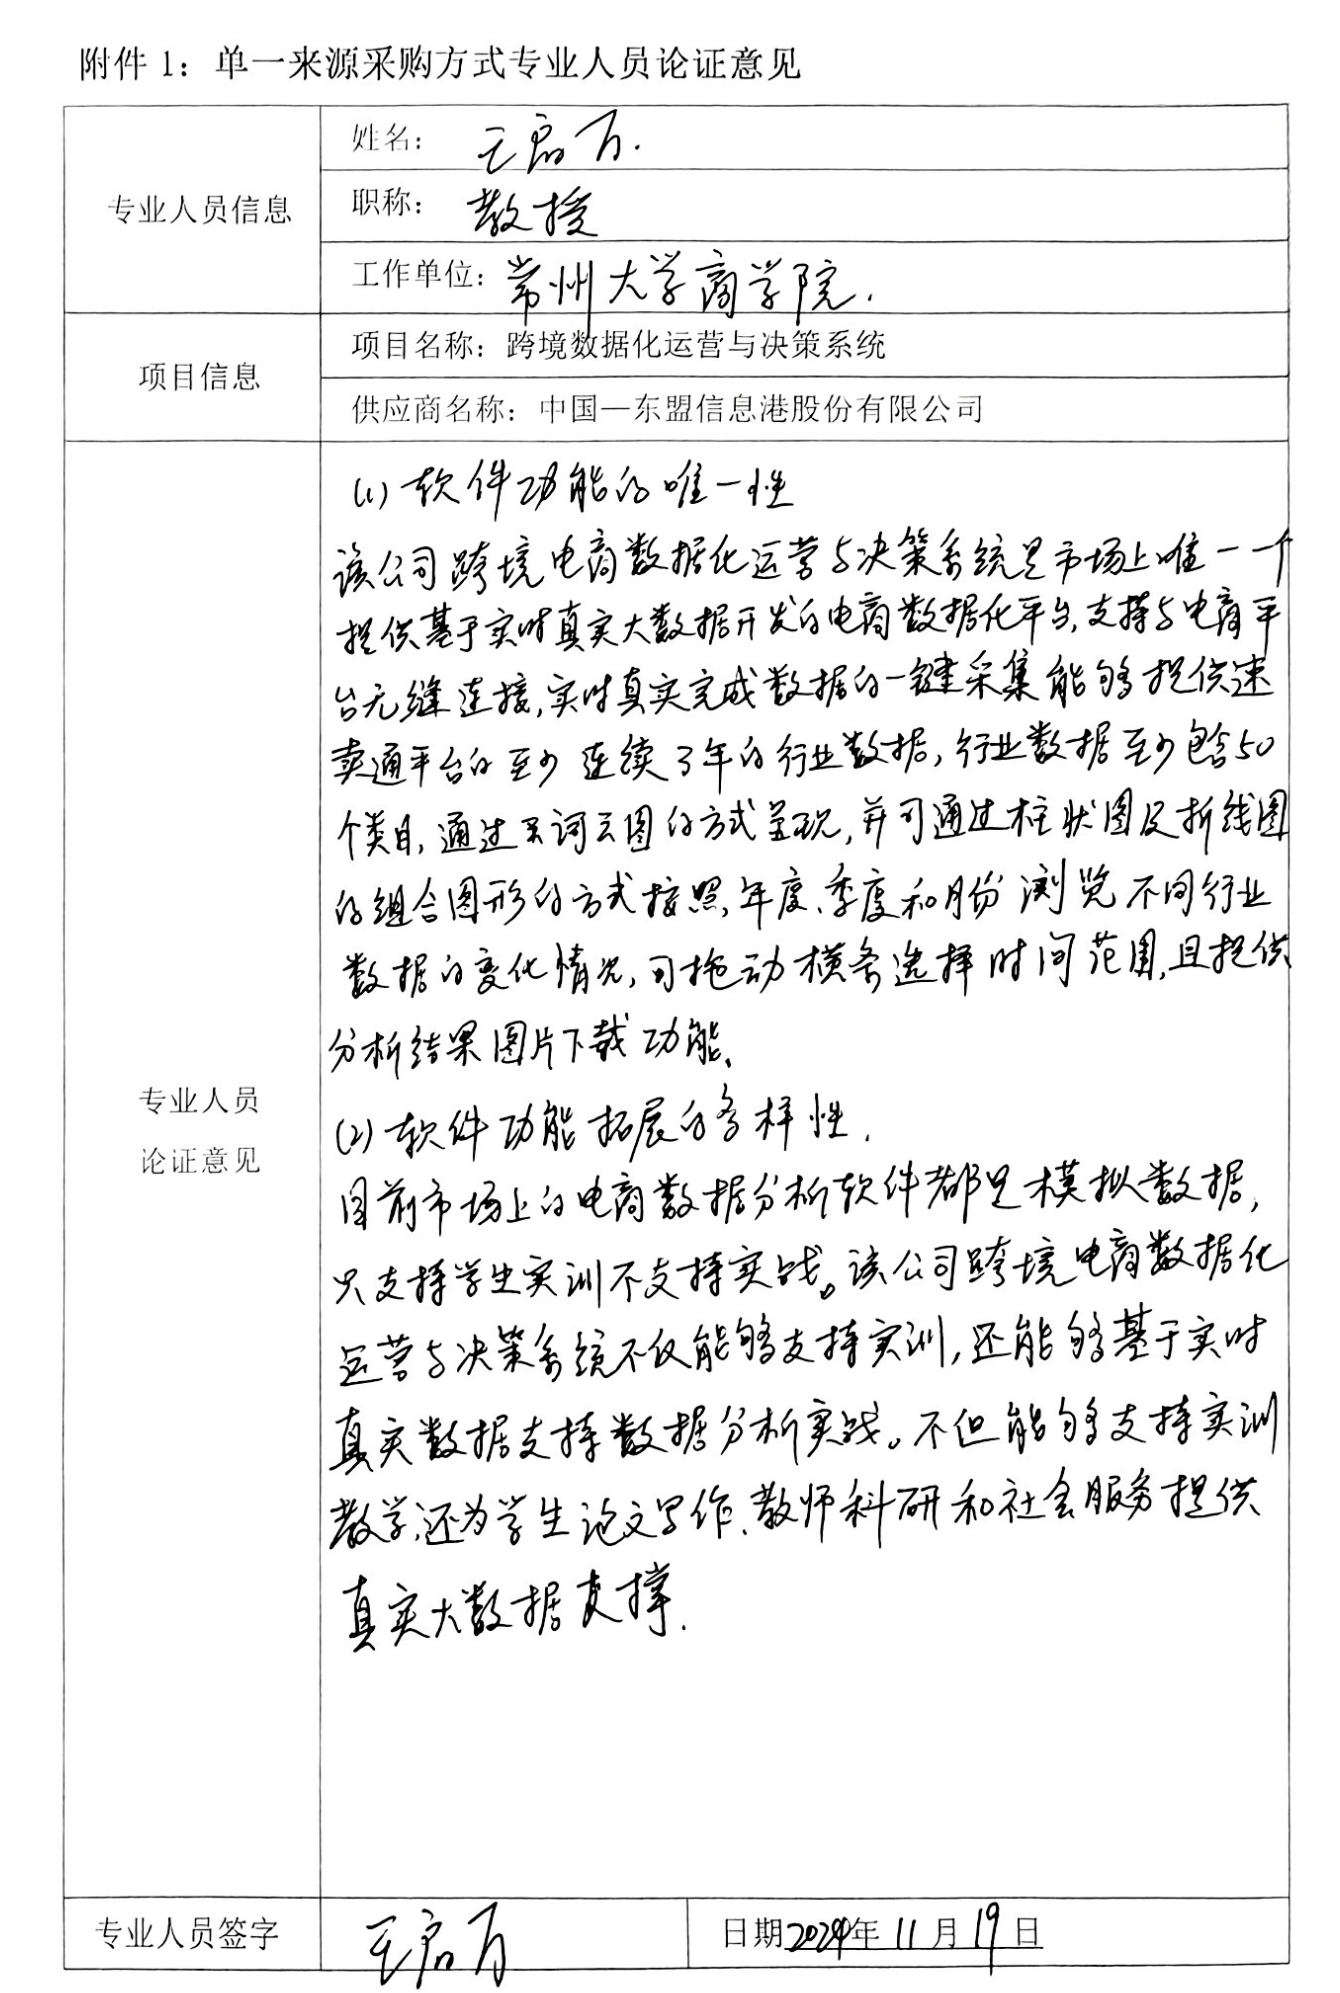 附件 1：单一来源采购方式专业人员论证意见
专业人员信息
姓名： 王启万.
职称： 教授
工作单位：常州大学商学院.
项目信息
项目名称：跨境数据化运营与决策系统
供应商名称：中国—东盟信息港股份有限公司
专业人员
论证意见
(1) 软件功能的唯一性
该公司跨境电商数据化运营与决策系统是市场上唯一一个
提供基于实时真实大数据开发的电商数据化平台,支持与电商平
台无缝连接,实时真实完成数据的一键采集能够提供速
卖通平台的至少连续3年的行业数据,行业数据至少包含50
个类目,通过词云图的方式呈现,并可通过柱状图及折线图
的组合图形的方式按照,年度、季度和月份浏览不同行业
数据的变化情况,可拖动横条选择时间范围,且提供
分析结果图片下载功能、
(2) 软件功能拓展的多样性.
目前市场上的电商数据分析软件都是模拟数据,
只支持学生实训不支持实战。该公司跨境电商数据化
运营与决策系统不仅能够支持实训,还能够基于实时
真实数据支持数据分析实战。不但能够支持实训
教学,还为学生论文写作、教师科研和社会服务提供
真实大数据支撑.
专业人员签字
王启万
日期2024年 11 月 19 日